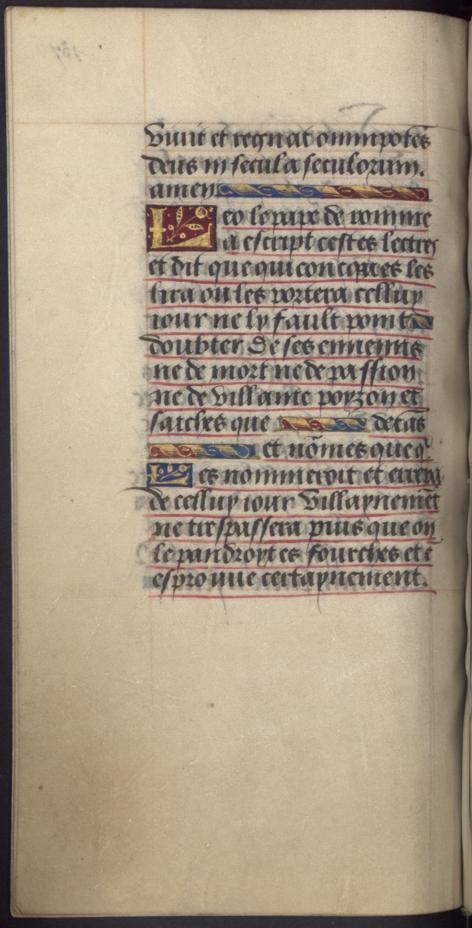 Viuit et regnat omnipotēs
deus in secula seculorum.
amen
Leo le pape de romme
a escript cestes lectres
et dit que quiconques les
lira ou les portera celluy
iour ne ly fault point
doubter de ses ennemis
ne de mort ne de passion
ne de villanie poyzon et
saiches que de tās
et nōmes que q̄
es nommeroit et
de celluy iour villaynemēt
ne trespassera puis que on
le pandroyt es fourches et ē
esprouue certaynement.